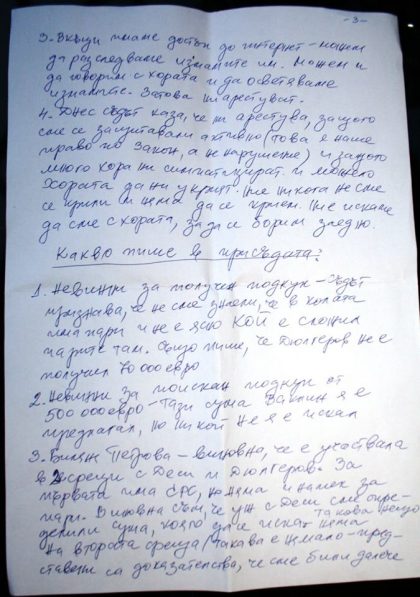 - 3 -
3. Вкъщи имаме достъп до интернет - можем
да разследваме измамите им. Можем и
да говорим с хората и да осветяваме
измамите. Затова ни арестуват.
4. Днес съдът каза, че ни арестува, защото
сме се защитавали активно (това е наше
право по закон, а не нарушение) и защото
много хора ни симпатизират и можело
хората да ни укрият. Ние никога не сме
се крили и няма да се крием. Ние искаме
да сме с хората, за да се борим заедно.
Какво пише в присъдата:
1. Невинни за получен подкуп - съдът
признава, че не сме знаели, че в колата
има пари и не е ясно КОЙ е сложил
парите там. Също пише, че Дюлгеров не е
получил 70 000 евро
2. Невинни за поискан подкуп от
500 000 евро - Тази сума Ваклин я е
предлагал, но никой не я е искал
3. Биляна Петрова - виновна, че е участвала
в 2 срещи с Деси и Дюлгеров. За
първата има СРС, но няма и намек за
пари. Виновна съм, че уж с Деси сме опре-
делили сума, която да се иска - няма такова нещо
На втората среща (такава е нямало - пред-
ставени са доказателства, че сме били далече